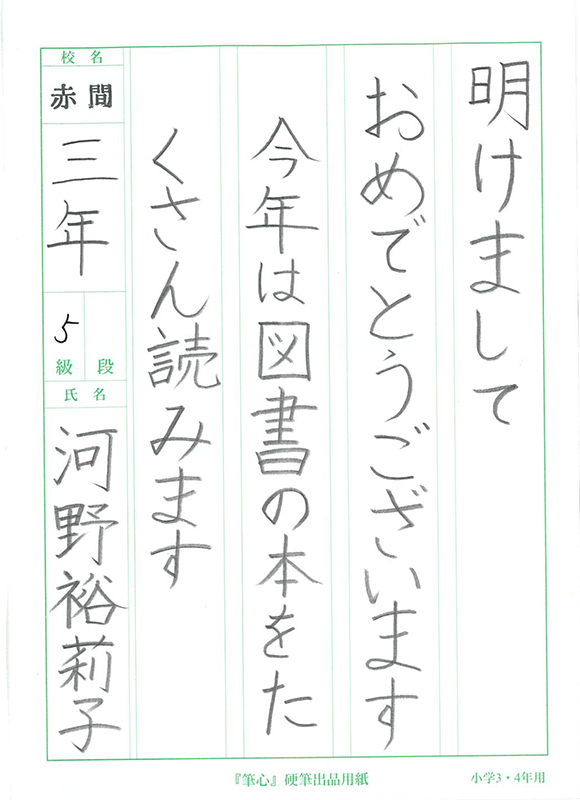 明けまして
おめでとうございます
今年は図書の本をた
くさん読みます
校名
赤間
三年
5
級 段
氏名
河野裕莉子
『筆心』硬筆出品用紙
小学3・4年用